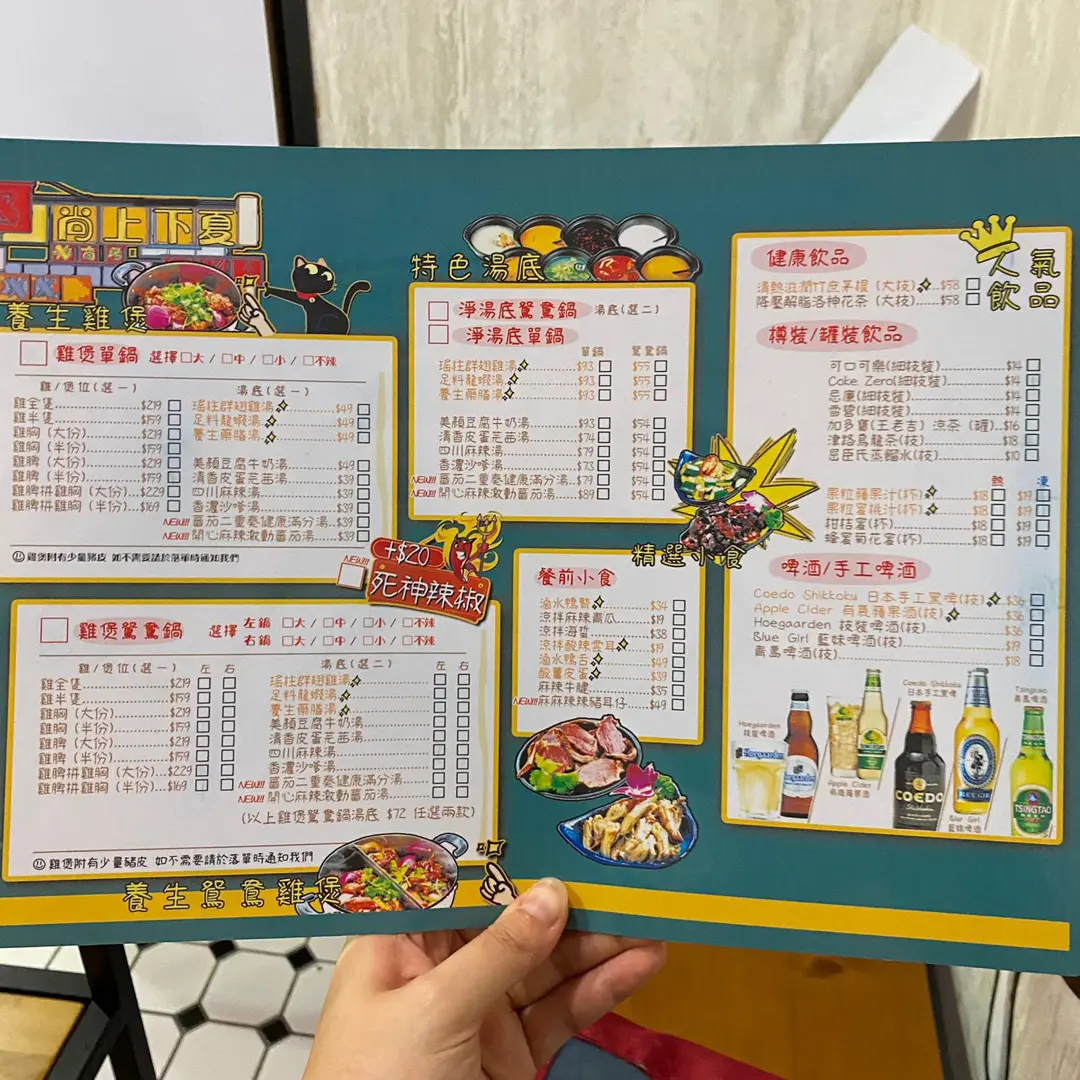 尚上下夏
養生雞煲
雞煲單鍋 選擇□大 / □中 / □小 / □不辣
雞/煲位(選一) 湯底(選一)
雞全煲 $219
雞半煲 $159
雞胸 (大份) $219
雞胸 (半份) $159
雞脾 (大份) $219
雞脾 (半份) $159
雞脾拼雞胸 (大份) $229
雞脾拼雞胸 (半份) $169
瑶柱群翅雞湯 $49
足料龍蝦湯 $49
養生藥膳湯 $49
美顏豆腐牛奶湯 $49
清香皮蛋芫茜湯 $39
四川麻辣湯 $39
香濃沙嗲湯 $39
NEW!!! 蕃茄二重奏健康滿分湯 $39
NEW!!! 開心麻辣激動蕃茄湯 $39
雞煲附有少量豬皮 如不需要請於落單時通知我們
NEW!!! +$20
死神辣椒
雞煲鴛鴦鍋 選擇 左鍋 □大 / □中 / □小 / □不辣
右鍋 □大 / □中 / □小 / □不辣
雞/煲位(選一) 左 右 湯底(選二) 左 右
雞全煲 $219
雞半煲 $159
雞胸 (大份) $219
雞胸 (半份) $159
雞脾 (大份) $219
雞脾 (半份) $159
雞脾拼雞胸 (大份) $229
雞脾拼雞胸 (半份) $169
瑶柱群翅雞湯
足料龍蝦湯
養生藥膳湯
美顏豆腐牛奶湯
清香皮蛋芫茜湯
四川麻辣湯
香濃沙嗲湯
NEW!!! 蕃茄二重奏健康滿分湯
NEW!!! 開心麻辣激動蕃茄湯
(以上雞煲鴛鴦鍋湯底 $72 任選兩款)
雞煲附有少量豬皮 如不需要請於落單時通知我們
養生鴛鴦雞煲
特色湯底
淨湯底鴛鴦鍋 湯底(選二)
淨湯底單鍋
單鍋 鴛鴦鍋
瑶柱群翅雞湯 $93 $55
足料龍蝦湯 $93 $55
養生藥膳湯 $93 $55
美顏豆腐牛奶湯 $93 $54
清香皮蛋芫茜湯 $74 $54
四川麻辣湯 $79 $54
香濃沙嗲湯 $73 $54
NEW!!! 蕃茄二重奏健康滿分湯 $79 $54
NEW!!! 開心麻辣激動蕃茄湯 $89 $54
精選小食
餐前小食
滷水鴨腎 $34
涼拌麻辣青瓜 $19
涼拌海蜇 $38
涼拌酸辣雲耳 $19
滷水鴨舌 $49
酸薑皮蛋 $39
麻辣牛腱 $35
NEW!!! 麻麻辣辣豬耳仔 $49
人氣飲品
健康飲品
清熱滋潤竹庶茅根 (大枝) $58
降壓解脂洛神花茶 (大枝) $58
樽裝/罐裝飲品
可口可樂(細枝裝) $14
Coke Zero(細枝裝) $14
忌廉(細枝裝) $14
雪碧(細枝裝) $14
加多寶(王老吉) 涼茶 (罐) $16
津路烏龍茶(枝) $18
屈臣氏蒸餾水(枝) $10
熱 凍
果粒蘋果汁(杯) $18 $19
果粒蜜桃汁(杯) $18 $19
柑桔蜜(杯) $18 $19
蜂蜜菊花蜜(杯) $18 $19
啤酒/手工啤酒
Coedo Shikkoku 日本手工黑啤(枝) $36
Apple Cider 有氣蘋果酒(枝) $36
Hoegaarden 枝裝啤酒(枝) $36
Blue Girl 藍妹啤酒(枝) $19
青馬啤酒(枝) $18
Hoegaarden
枝裝啤酒
Apple Cider
有氣蘋果酒
Coedo Shikkoku
日本手工黑啤
COEDO
Blue Girl
藍妹啤酒
Tsingtao
青馬啤酒
TSINGTAO